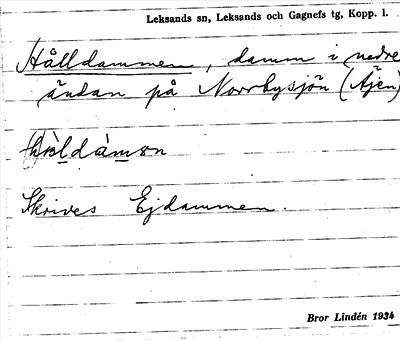 Leksands sn, Leksands och Gagnefs tg, Kopp. l.
Hålldammen, damm i nedre
ändan på Norrbysjön (Äjen)
Skrives Ejdammen.
Bror Lindén 1934